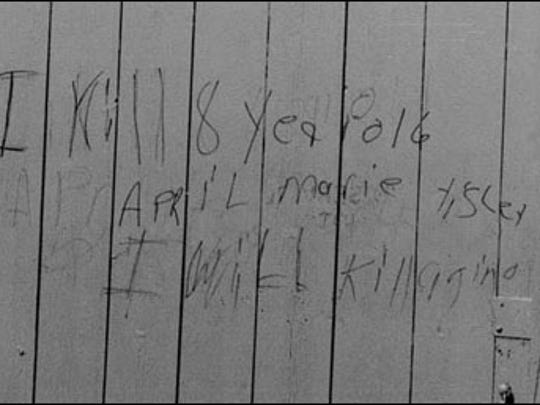 I Kill 8 year old
APRIL marie Tisley
I Will Kill agin